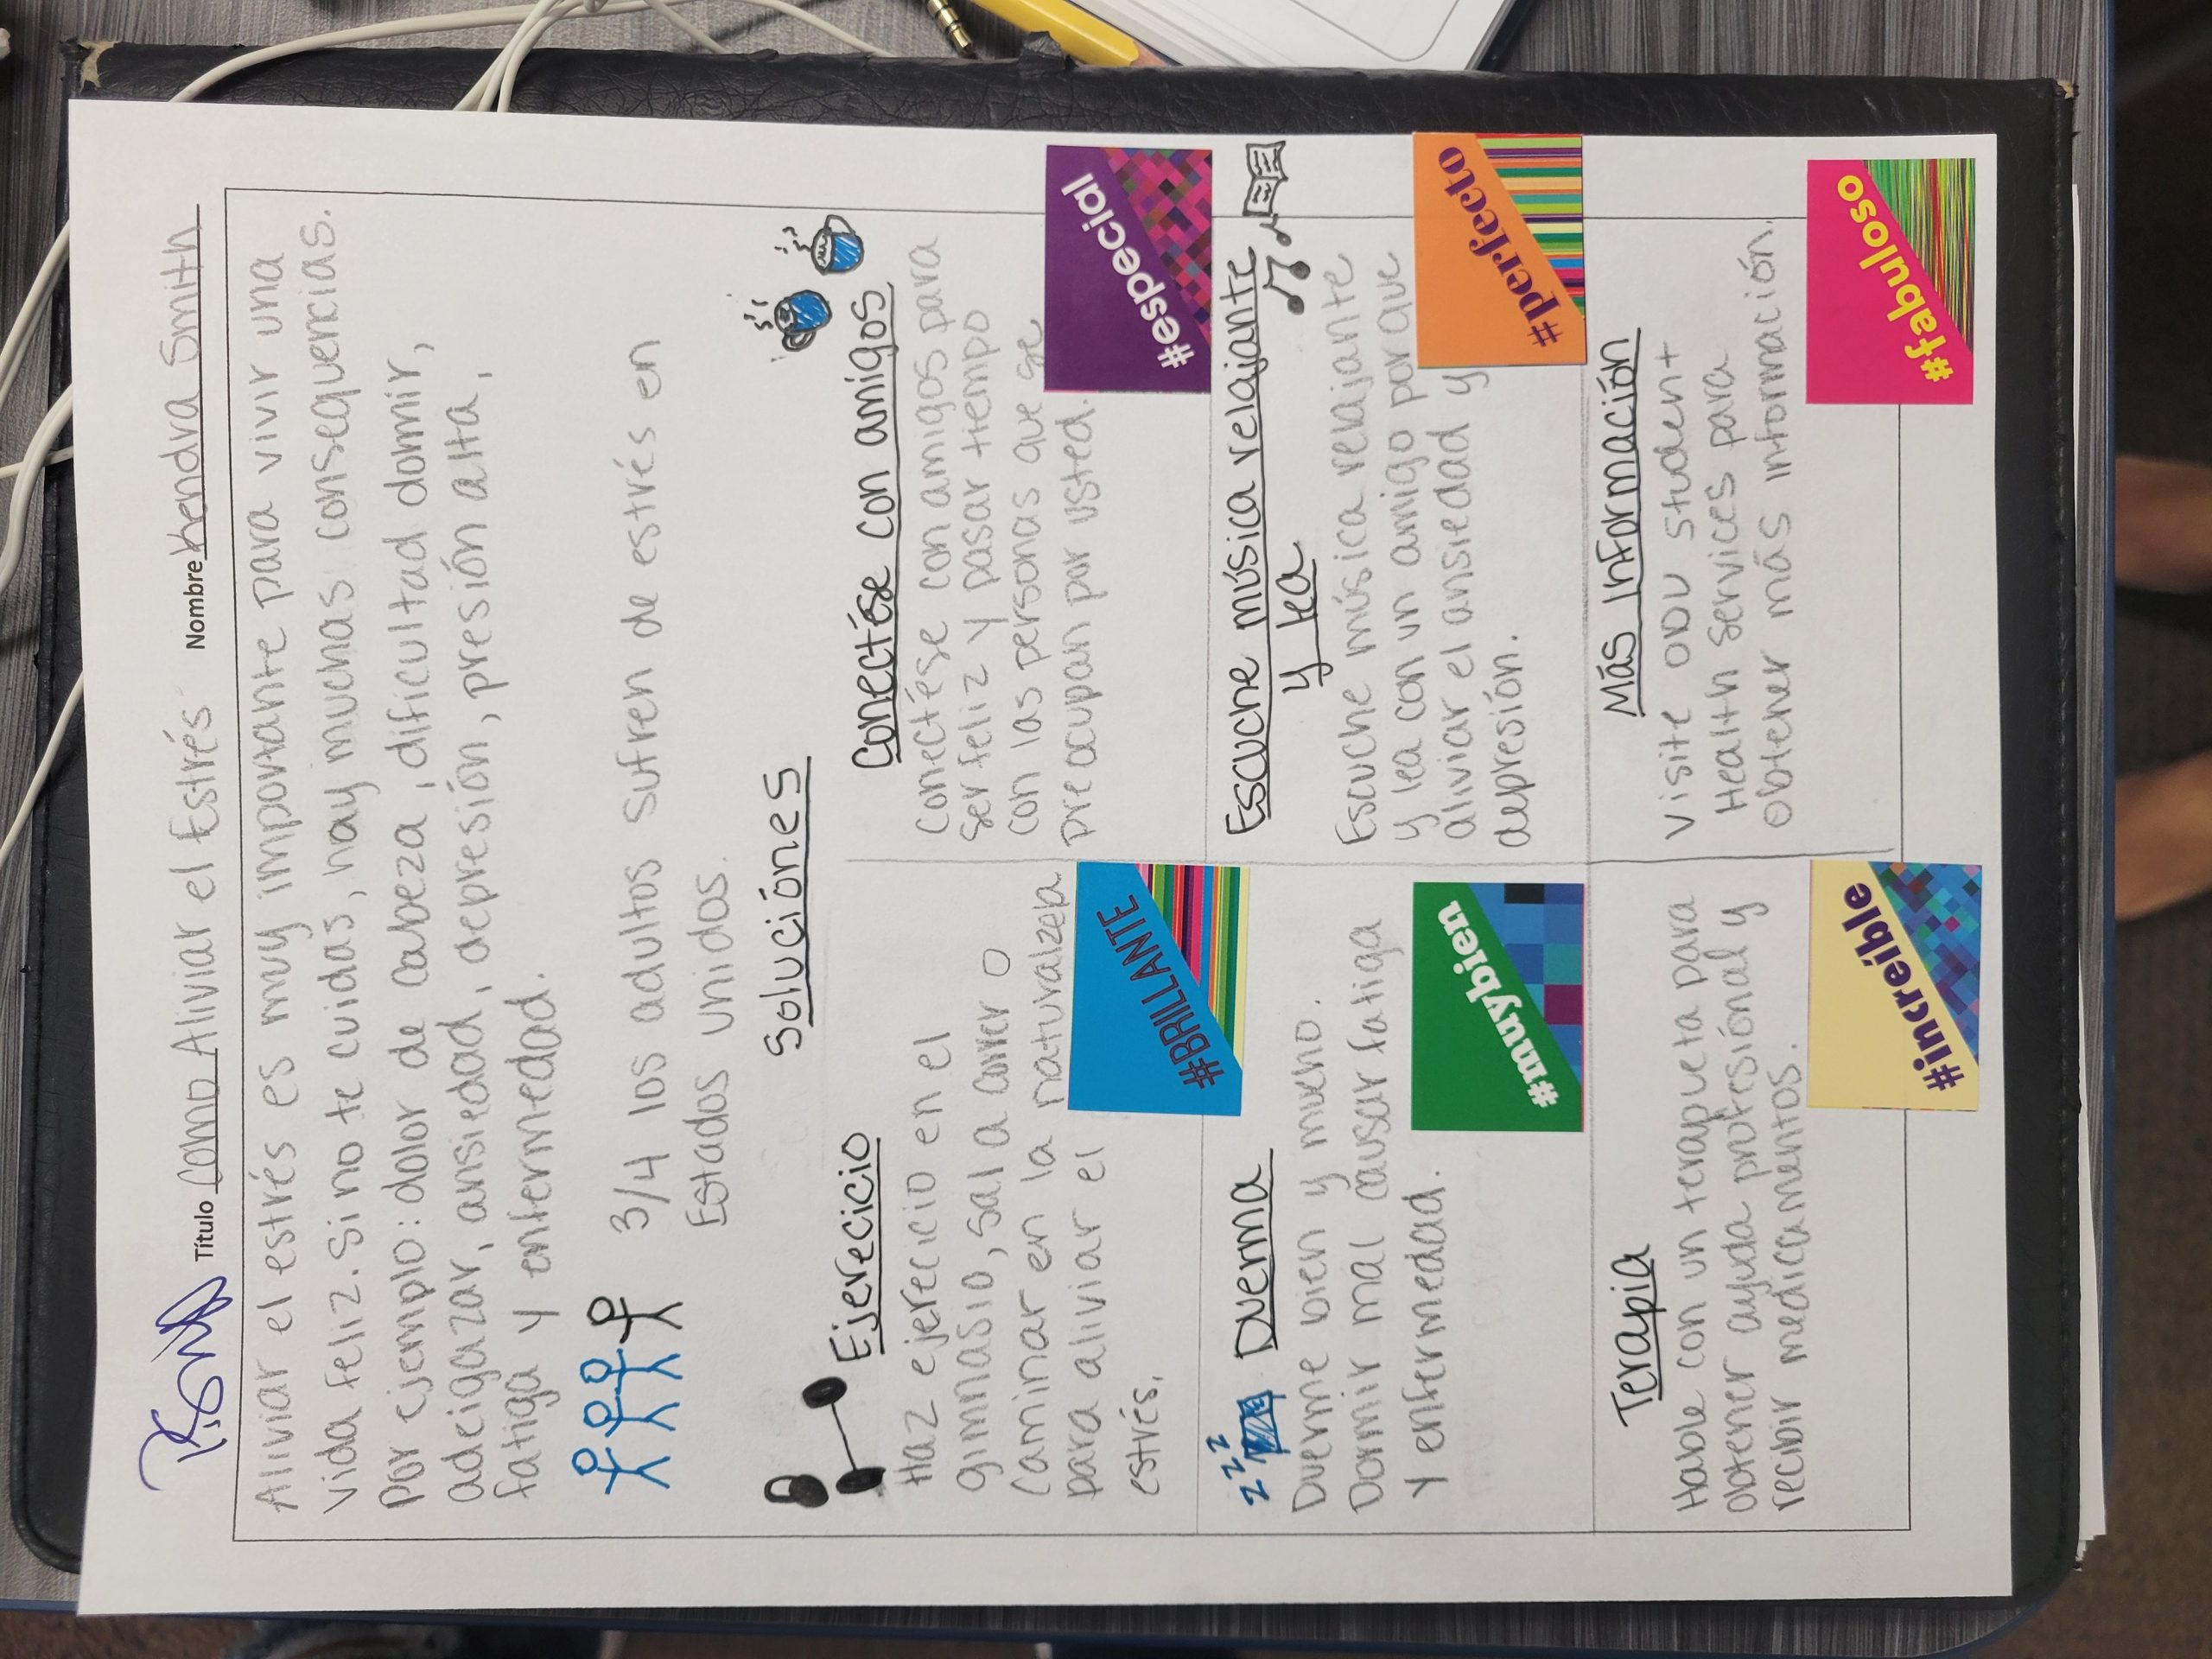 Título Como Aliviar el Estrés Nombre Kendra Smith
Aliviar el estrés es muy importante para vivir una
vida feliz. Si no te cuidas, hay muchas consequencias.
Por ejemplo: dolor de cabeza, dificultad domir,
adelgazar, ansiedad, depresión, presión alta,
fatiga y enfermedad.
3/4 los adultos sufren de estrés en
Estados unidos.
Soluciónes
Ejerecicio
Haz ejerecicio en el
gimnasio, sal a correr o
caminar en la naturalzela
para aliviar el
estrés.
#BRILLANTE
Conectése con amigos
Conectése con amigos para
ser feliz y pasar tiempo
con las personas que se
preocupan por usted.
#especial
zzz Duerma
Duerme bien y mucho.
Dormir mal causar fatiga
y enfermedad.
#muybien
Escuche música relajante
y lea
Escuche música relajante
y lea con un amigo por que
aliviar el ansiedad y
depresión.
#perfecto
Terapia
Hable con un terapueta para
obtener ayuda profesiónal y
recibir medicamentos.
#increíble
Más Información
Visite ODU student
Health services para
obtener más información.
#fabuloso